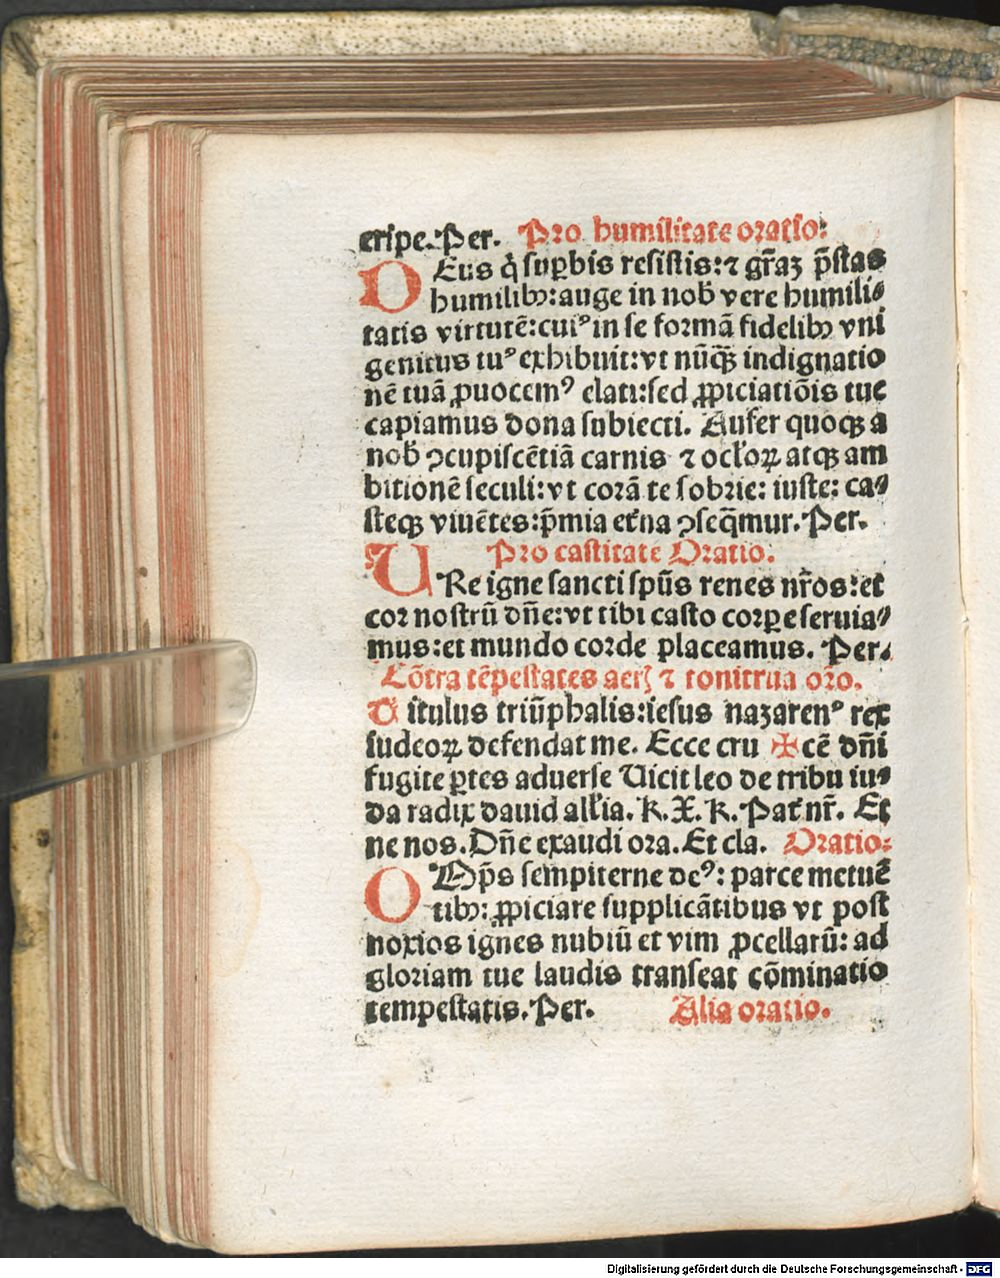 eripe. Per. Pro humilitate oratio:
DEus q̇ suꝑbis resistis: ⁊ gr̄aȝ p̄stas
humilibꝫ: auge in nob̄ vere humili⸗
tatis virtutē: cuiꝰ in se formā fidelibꝫ vni
genitus tuꝰ exhibuit: vt nūqꝫ̄ indignatio
nē tuā ꝓuocemꝰ elati: sed ꝓpiciatiōis tue
capiamus dona subiecti. Aufer quoqꝫ a
nob̄ ꝯcupiscētiā carnis ⁊ ocl̓oꝝ atqꝫ am
bitionē seculi: vt corā te sobrie: iuste: ca⸗
steqꝫ viuētes: p̄mia et̓na ꝯseq̄mur. Per.
Pro castitate Oratio.
URe igne sancti sp̄us renes nr̄os: et
cor nostrū dn̄e: vt tibi casto corꝑe seruia⸗
mus: et mundo corde placeamus. Per.
Cōtra tēpestates aerꝭ ⁊ tonitrua or̄o.
Titulus triūphalis: iesus nazarenꝰ rex
iudeoꝝ defendat me. Ecce cru ✠ cē dn̄i
fugite ꝑtes aduerse Uicit leo de tribu iu⸗
da radix dauid all̓ia. k. X. k. Pat̓ nr̄. Et
ne nos. Dn̄e exaudi ora. Et cla. Oratio:
OMp̄s sempiterne deꝰ: parce metuē
tibꝫ: ꝓpiciare supplicātibus vt post
noxios ignes nubiū et vim ꝓcellarū: ad
gloriam tue laudis transeat cōminatio
tempestatis. Per. Alia oratio.
Digitalisierung gefördert durch die Deutsche Forschungsgemeinschaft - DFG